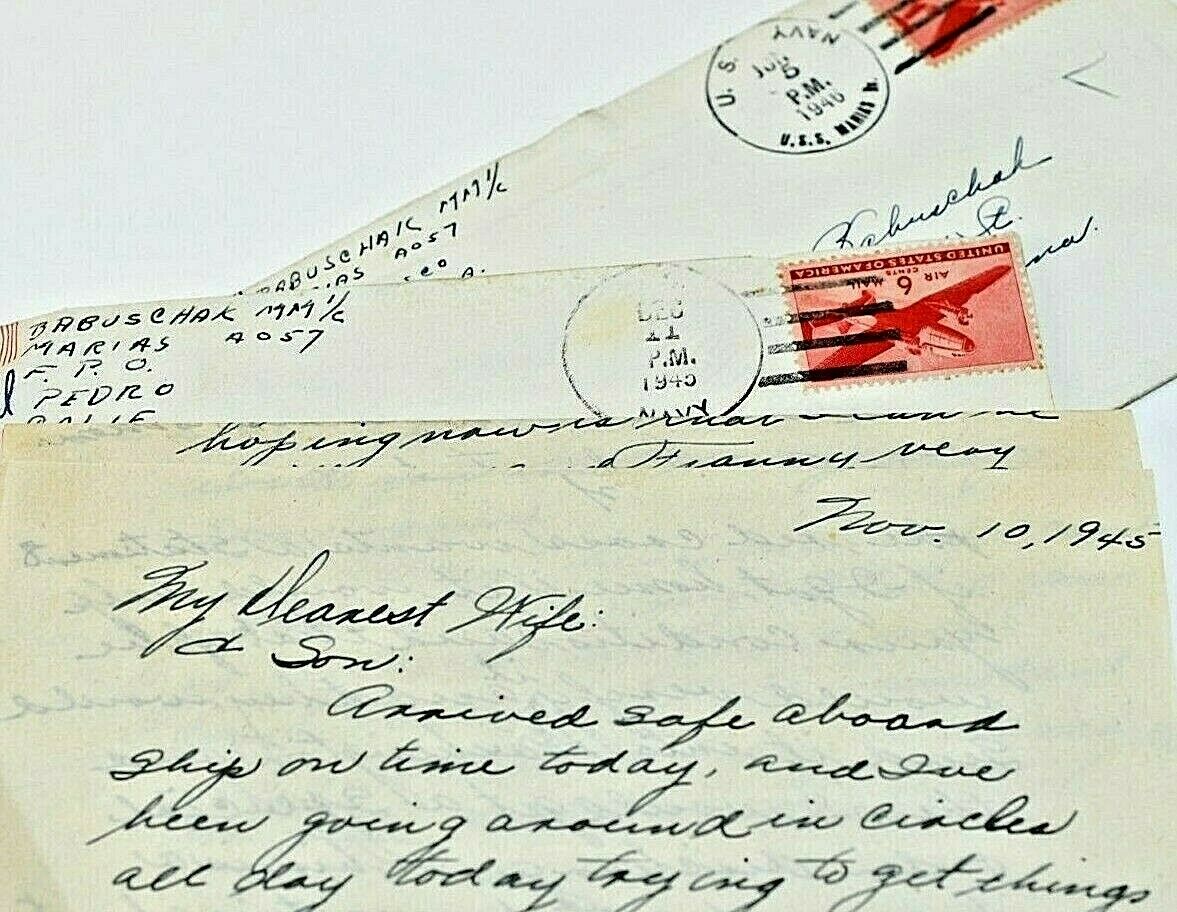 U. S. NAVY
P.M.
1946
U.S.S. MARIAS
BABUSCHAK MM 1/C
A057
Babuschak
St.
BABUSCHAK MM 1/C
MARIAS A057
F. P. O.
PEDRO
CALIF
DEC
11
P.M.
1945
NAVY
UNITED STATES OF AMERICA
AIR MAIL
6 CENTS
hoping now is
Franny very
Nov. 10, 1945
My Dearest Wife:
& Son:
Arrived safe aboard
ship on time today, and I've
been going around in circles
all day today trying to get things